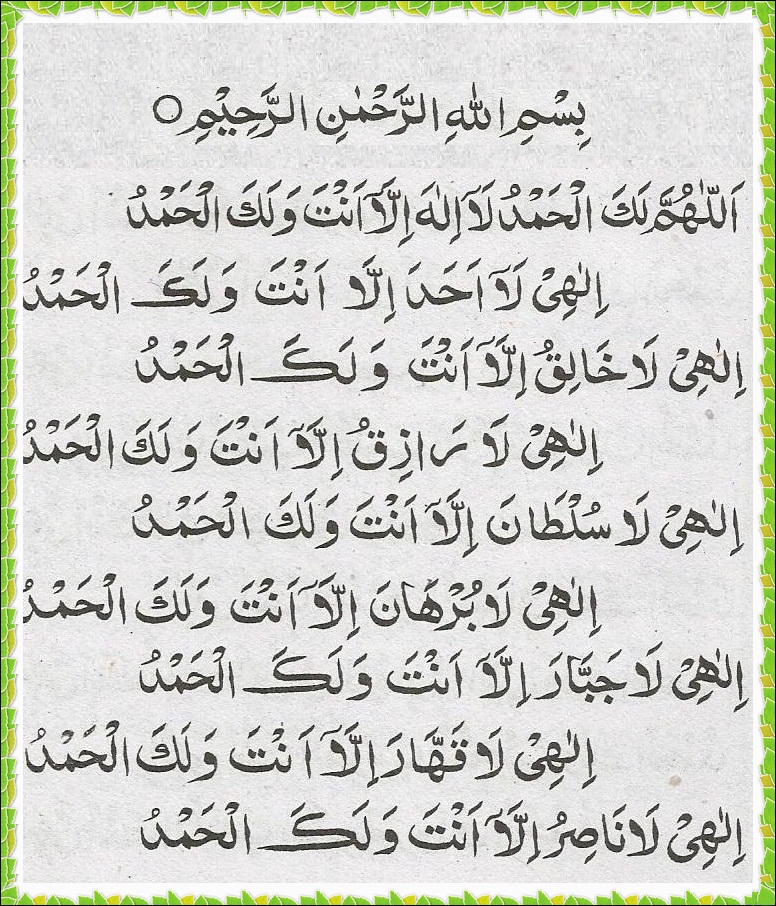 بِسْمِ اللّٰهِ الرَّحْمٰنِ الرَّحِيْمِ ○
اَللّٰهُمَّ لَكَ الْحَمْدُ لَآ اِلٰهَ اِلَّآ اَنْتَ وَلَكَ الْحَمْدُ
اِلٰهِيْ لَآ اَحَدَ اِلَّا اَنْتَ وَلَكَ الْحَمْدُ
اِلٰهِيْ لَا خَالِقُ اِلَّآ اَنْتَ وَلَكَ الْحَمْدُ
اِلٰهِيْ لَا رَازِقُ اِلَّآ اَنْتَ وَلَكَ الْحَمْدُ
اِلٰهِيْ لَا سُلْطَانَ اِلَّآ اَنْتَ وَلَكَ الْحَمْدُ
اِلٰهِيْ لَا بُرْهَانَ اِلَّآ اَنْتَ وَلَكَ الْحَمْدُ
اِلٰهِيْ لَا جَبَّارَ اِلَّآ اَنْتَ وَلَكَ الْحَمْدُ
اِلٰهِيْ لَا قَهَّارَ اِلَّآ اَنْتَ وَلَكَ الْحَمْدُ
اِلٰهِيْ لَا نَاصِرُ اِلَّآ اَنْتَ وَلَكَ الْحَمْدُ